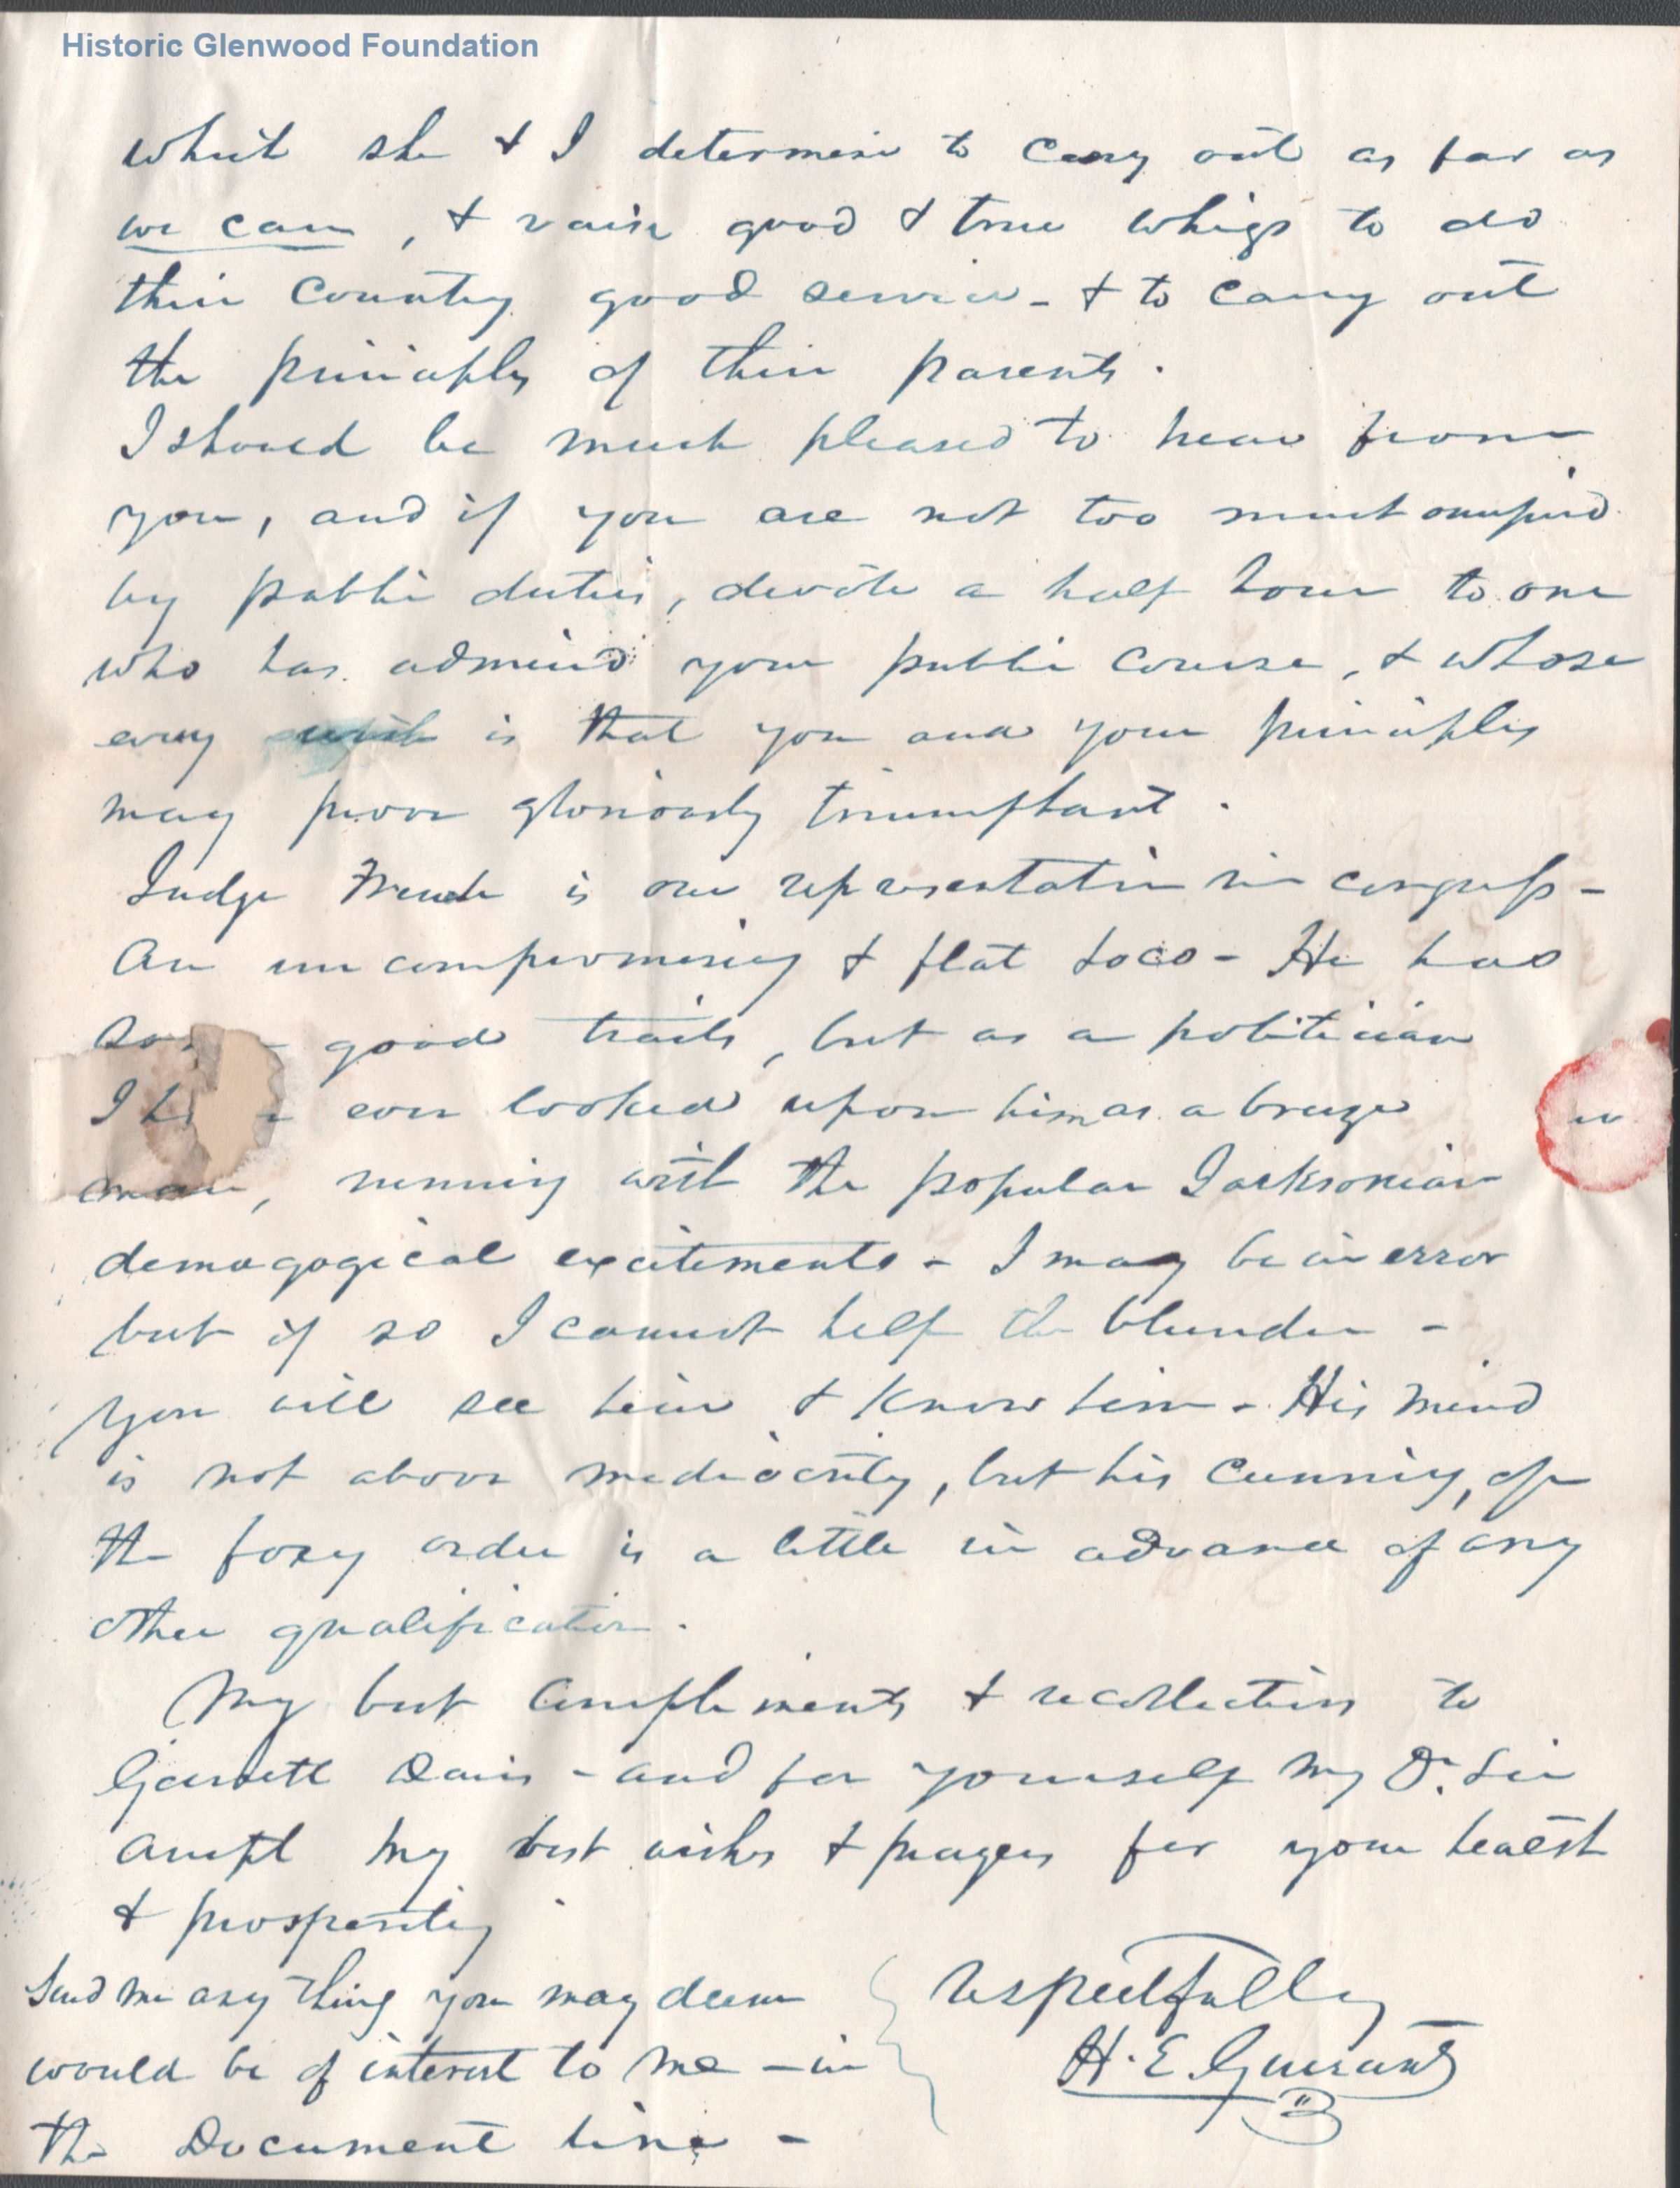 Historic Glenwood Foundation
which she & I determine to carry out as far as
we can, & raise good & true whigs to do
their Country good service - & to carry out
the principles of their parents.
I should be much pleased to hear from
you, and if you are not too much occupied
by public duties, devote a half hour to one
who has admired your public course, & whose
every wish is that you and your principles
may prove gloriously triumphant.
Judge French is our representative in congress -
An uncompromising & flat Loco - He has
good traits, but as a politician
I ever looked upon him as a breeze
man, running with the popular Jacksonian
demagogical excitements - I may be in error
but if so I cannot help the blunder -
You will see him & know him - His mind
is not above mediocrity, but his cunning, of
the foxy order is a little in advance of any
other qualification.
My best compliments & recollections to
Garrett Davis - and for yourself my Dr. Sir
accept my best wishes & prayers for your health
& prosperity
Respectfully
H. E. Guerant
Send me any thing you may deem
would be of interest to me - in
the Document line -